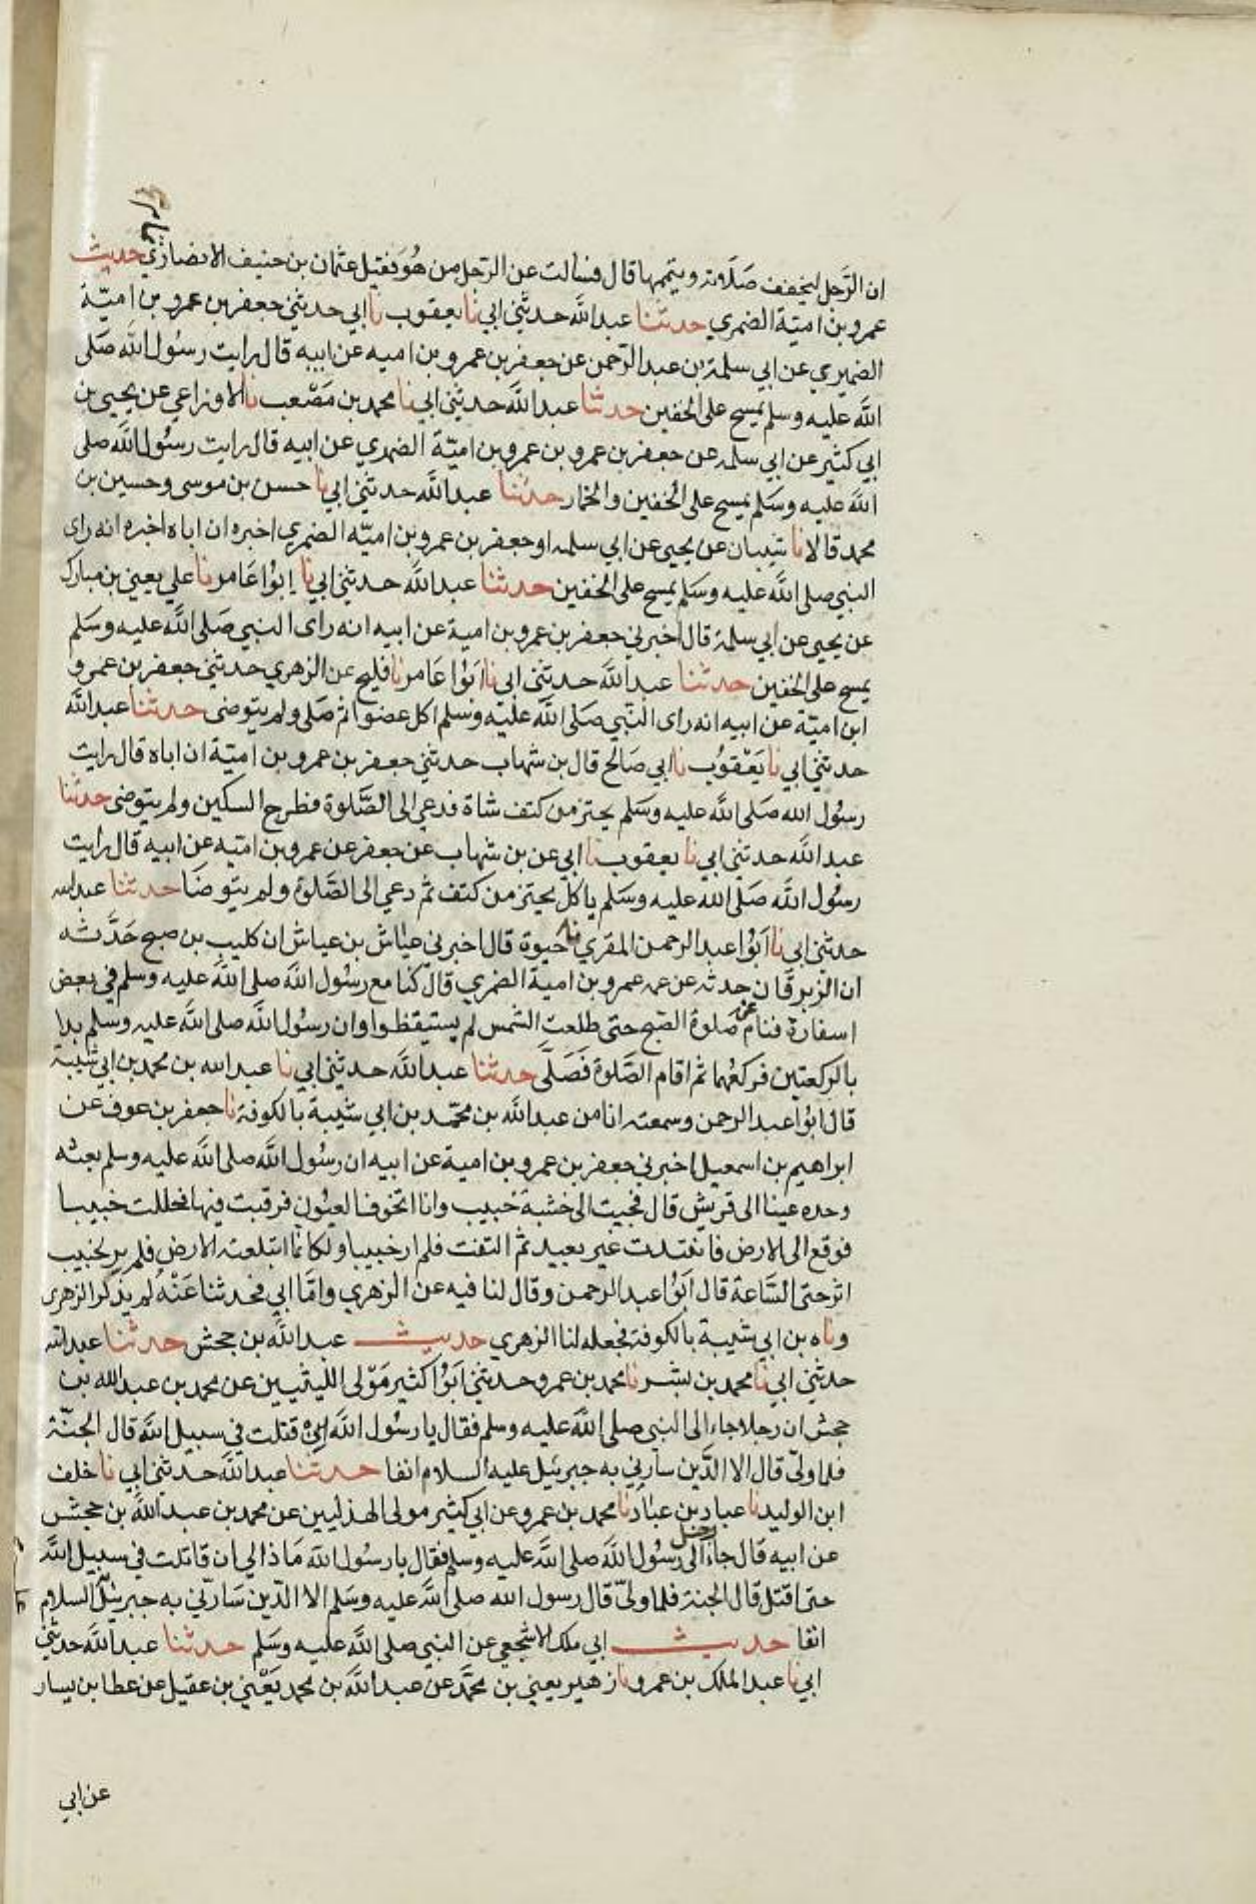 ان الرَّجل ليخفف صَلَاته ويتمها قال فسألت عن الرّجل من هُوَ فقيل عثمان بن حنيف الانصاري حديث
عمرو بن اميّة الضمري حدثنا عبد الله حدثني ابي نا يعقوب نا ابي حدثني جعفر بن عمرو بن اميّة
الضميري عن ابي سلمة بن عبد الرّحمن عن جعفر بن عمرو بن اميه عن ابيه قال رايت رسُول الله صَلى
الله عليه وسلم يمسح على الخفين حدثنا عبد الله حدثني ابي نا محمد بن مَصْعب نا الاوزاعي عن يحيى بن
ابي كثير عن ابي سلمه عن جعفر بن عمرو بن عمرو بن اميّة الضمري عن ابيه قال رايت رسُول الله صلى
الله عليه وسَلم يمسح على الخفين والخمار حدثنا عبد الله حدثني ابي نا حسن بن موسى وحسين بن
محمد قالا نا شيبان عن يحيى عن ابي سلمه او جعفر بن عمرو بن اميّه الضمري اخبره ان اباه اخبره انه راى
النبي صلى الله عليه وسَلم يمسح على الخفين حدثنا عبد الله حدثني ابي نا ابوا عَامر نا علي يعني بن مبارك
عن يحيى عن ابي سلمة قال اخبرني جعفر بن عمرو بن امية عن ابيه انه راى النبي صَلى الله عليه وسَلم
يمسح على الخفين حدثنا عبد الله حدثني ابي نا ابَوُا عَامر نا فليح عن الزهري حدثني جعفر بن عمرو
ابن اميّة عن ابيه انه راى النّبي صَلى الله عليه وسلم اكل عضوا ثم صَلى ولم يتوضى حدثنا عبد الله
حدثني ابي نا يَعْقوُب نا ابي صَالح قال بن شهاب حدثني جعفر بن عمرو بن اميّة ان اباه قال رايت
رسُول الله صَلى الله عليه وسَلم يحتز من كتف شاة فدعي الى الصَّلوة فطرح السكين ولم يتوضى حدثنا
عبد الله حدثني ابي نا يعقوب نا ابي عن بن شهاب عن جعفر عن عمرو بن اميه عن ابيه قال رايت
رسُول الله صَلى الله عليه وسَلم ياكل يحتز من كتف ثم دعي الى الصَّلوة ولم يتوضَا حدثنا عبد الله
حدثني ابي نا ابَوُا عبد الرحمن المقري نا حيوة قال اخبرني عياش بن عياش ان كليب بن صبح حَدَّثه
ان الزبرقان حدثه عن عمه عمرو بن امية الضمري قال كنا مع رسُول الله صلى الله عليه وسلم في بعض
اسفارة فنام عن صَلوة الصّبح حتى طلعت الشمس لم يستيقظوا وان رسُول الله صلى الله عليه وسلم بدا
بالركعتين فركعهما ثم اقام الصَّلوة فَصَلَّى حدثنا عبد الله حدثني ابي نا عبد الله بن محمد بن ابي شيبة
قال ابوُا عبد الرحمن وسمعته انا من عبد الله بن محمّد بن ابي شيبة بالكوفة نا جعفر بن عوف عن
ابراهيم بن اسمعيل اخبرني جعفر بن عمرو بن امية عن ابيه ان رسُول الله صلى الله عليه وسلم بعثه
وحده عينا الى قريش قال فجيت الى خشبة خبيب وانا اتخوف العيُون فرقيت فيها فحللت خبيبا
فوقع الى الارض فانتبذت غير بعيد ثم التفت فلم ار خبيبا ولكانما ابتلعته الارض فلم ير لخبيب
اثر حتى السَّاعة قال ابَوُا عبد الرحمن وقال لنا فيه عن الزهري وامّا ابي فحدثنا عَنْهُ لم يذكر الزهرى
وناه بن ابي شيبة بالكوفة فجعله لنا الزهري حديث عبد الله بن جحش حدثنا عبد الله
حدثني ابي نا محمد بن بشر نا محمد بن عمرو حدثني ابَوُا كثير مَوْلى الليثيين عن محمد بن عبد الله بن
جحش ان رجلا جاء الى النبي صلى الله عليه وسلم فقال يا رسُول الله ان قتلت في سبيل الله قال الجنّة
فلما ولّى قال الا الدَّين سارني به جبرئيل عليه السلام انفا حدثنا عبد الله حدثني ابي نا خلف
ابن الوليد نا عباد بن عبّاد نا محمد بن عمرو عن ابي كثير مولى الهذليين عن محمد بن عبد الله بن جحش
عن ابيه قال جاء رجل الى رسُول الله صلى الله عليه وسلم فقال يا رسُول الله مَاذا لي ان قاتلت في سبيل الله
حتى اقتل قال الجنة فلما ولّى قال رسول الله صلى الله عليه وسَلم الا الدّين سَارّني به جبرئيل السلام
انفا حديث ابي ملك الاشجعي عن النبي صلى الله عليه وسَلم حدثنا عبد الله حدثني
ابي نا عبد الملك بن عمرو نا زهير يعني بن محمَّد عن عبد الله بن محمد يَعْني بن عقيل عن عطا بن يسار
عن ابي